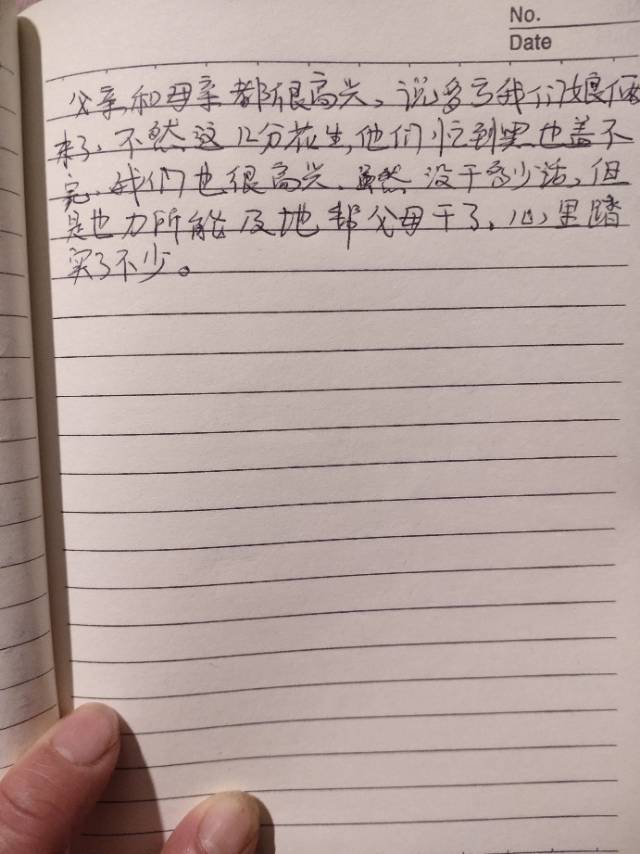 No.
Date
父亲和母亲都很高兴、说多亏我们娘俩
来了、不然这几分花生,他们忙到黑也盖不
完、我们也很高兴、虽然没干多少活、但
是也力所能及地帮父母干了、心里踏
实了不少。